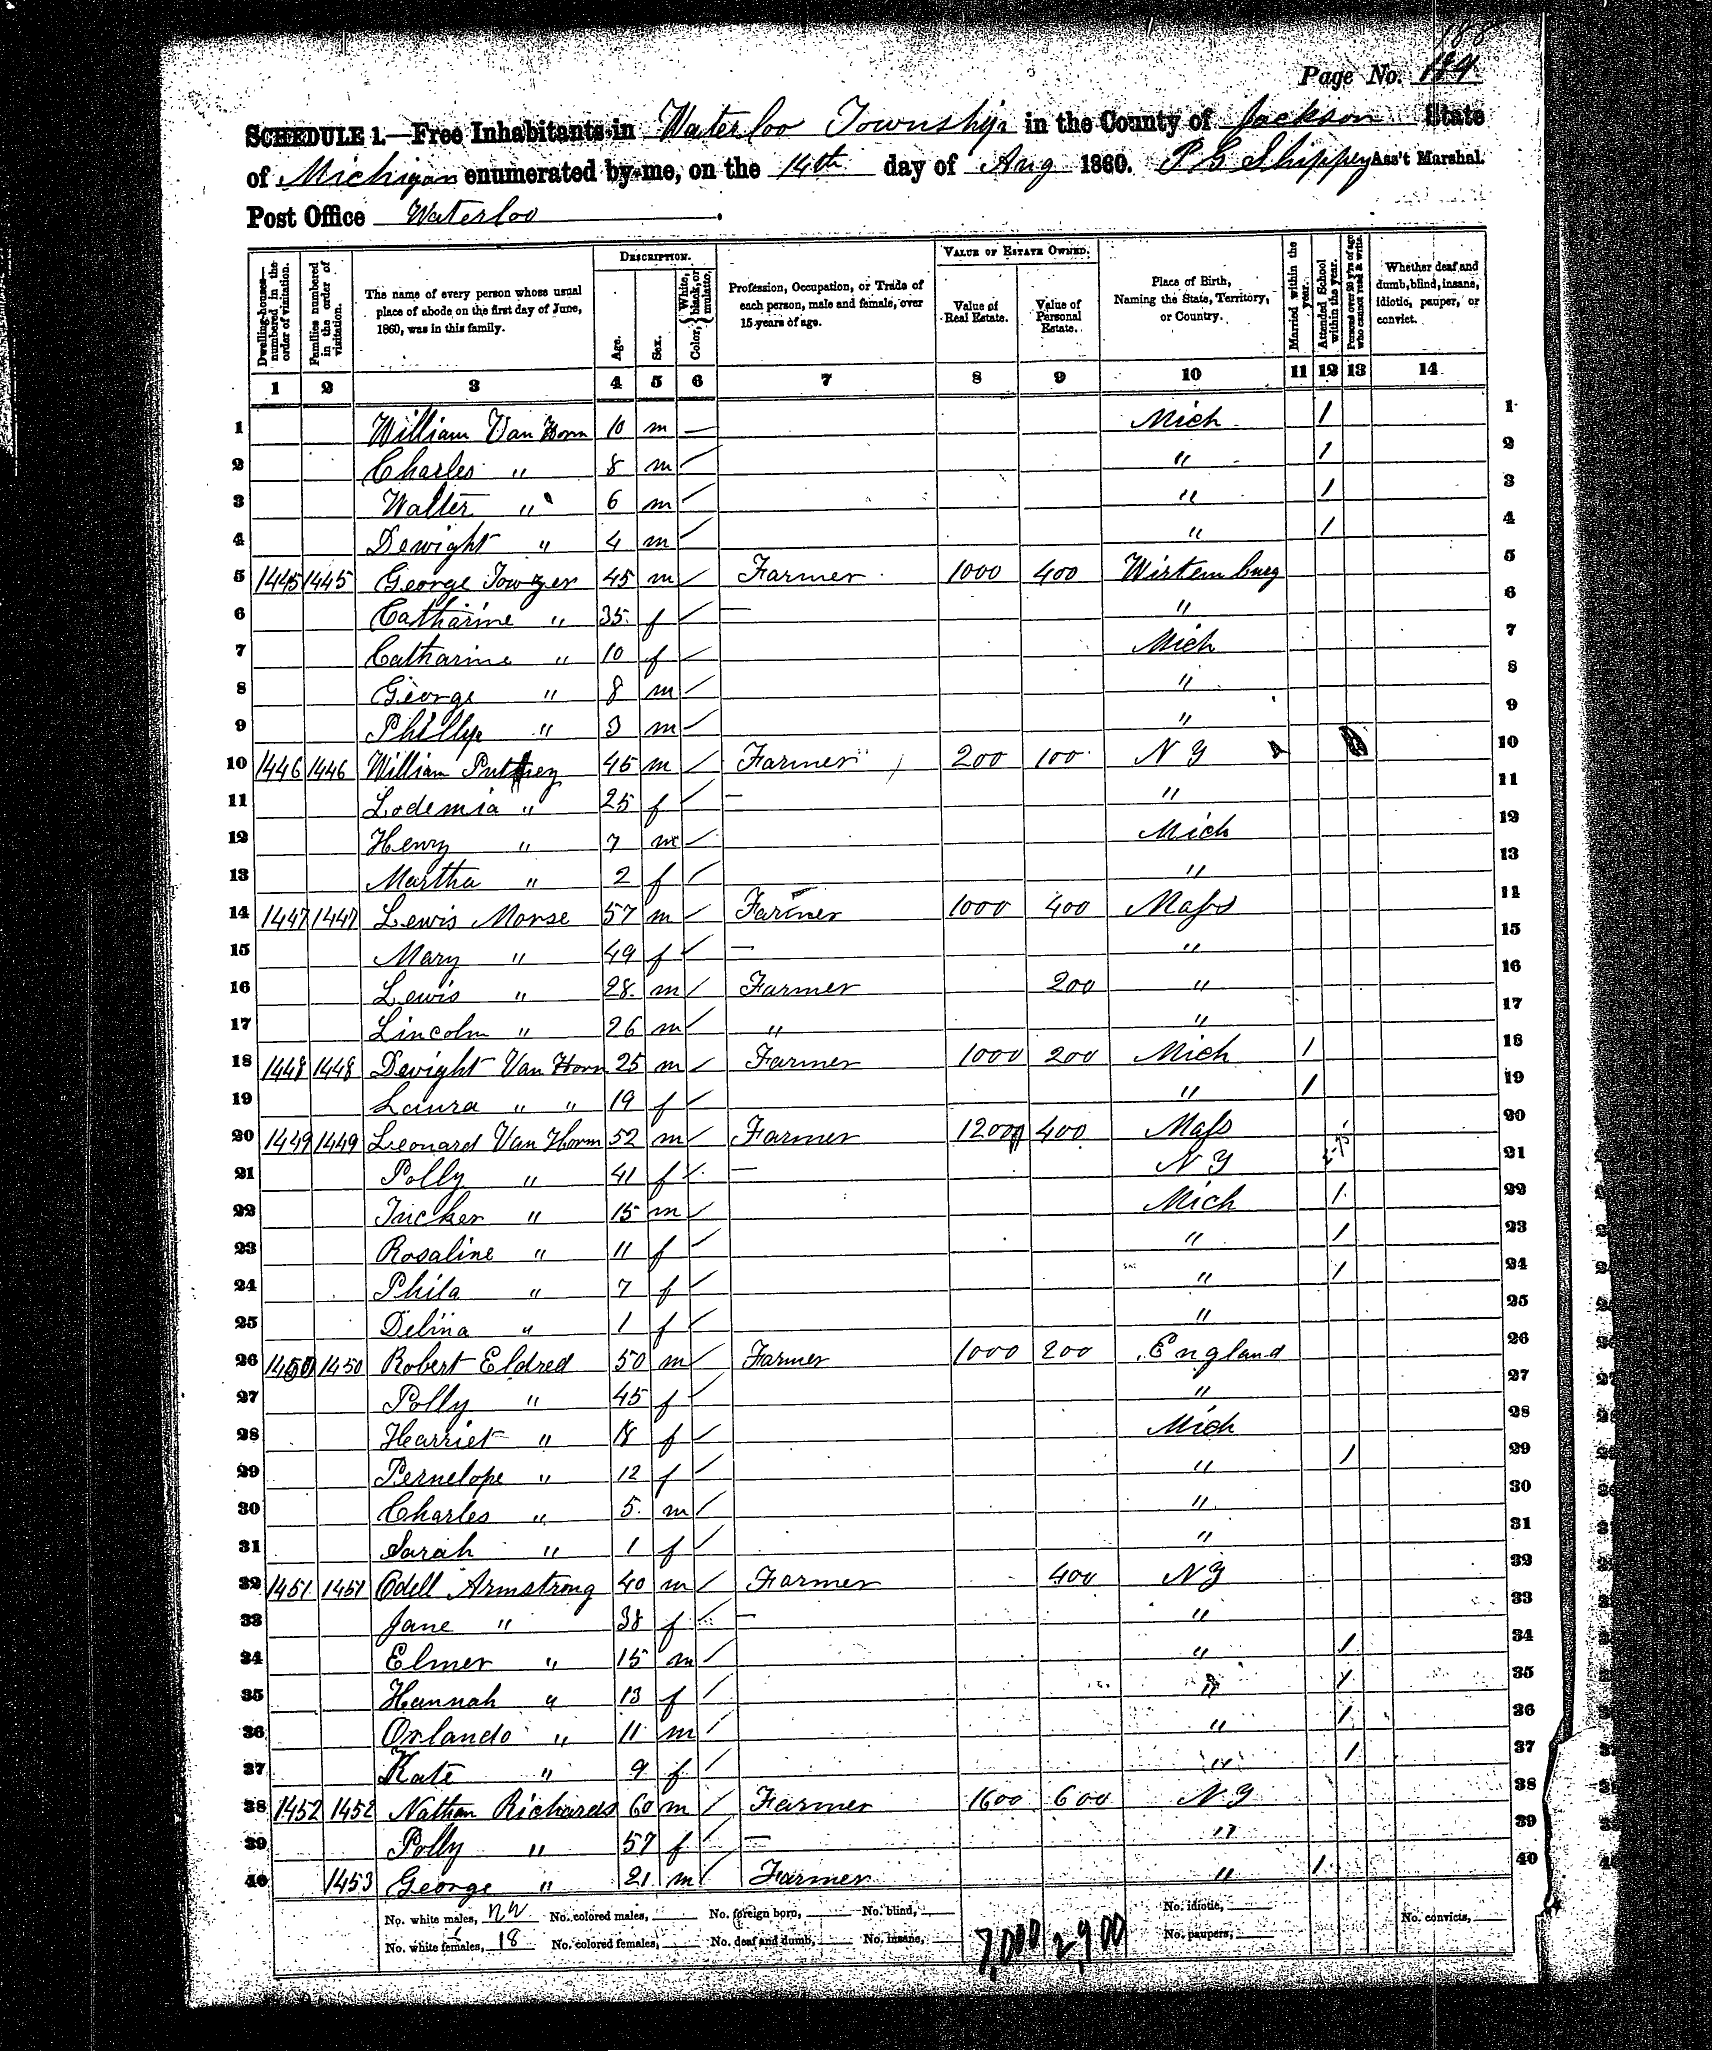 188
Page No. 184
SCHEDULE 1.—Free Inhabitants in Waterloo Township in the County of Jackson State
of Michigan enumerated by me, on the 14th day of Aug 1860. P G Shippey Ass't Marshal.
Post Office Waterloo
Dwelling-houses—numbered in the order of visitation. Families numbered in the order of visitation. The name of every person whose usual place of abode on the first day of June, 1860, was in this family. DESCRIPTION. Age. Sex. Color, {White, black, or mulatto. Profession, Occupation, or Trade of each person, male and female, over 15 years of age. VALUE OF ESTATE OWNED. Value of Real Estate. Value of Personal Estate. Place of Birth, Naming the State, Territory, or Country. Married within the year. Attended School within the year. Persons over 20 y'rs of age who cannot read & write. Whether deaf and dumb, blind, insane, idiotic, pauper, or convict.
1 2 3 4 5 6 7 8 9 10 11 12 13 14
1 William Van Horn 10 m Mich 1 1
2 Charles " 8 m " 1 2
3 Walter " 6 m " 1 3
4 Dewight " 4 m " 1 4
5 1445 1445 George Towzer 45 m Farmer 1000 400 Wirtemburg 5
6 Catharine " 35 f — " 6
7 Catharine " 10 f Mich 7
8 George " 8 m " 8
9 Phillip " 3 m " 9
10 1446 1446 William 45 m Farmer 200 100 N Y 10
11 Lodemia " 25 f — " 11
12 Henry " 7 m Mich 12
13 Martha " 2 f " 13
14 1447 1447 Lewis Morse 57 m Farmer 1000 400 Mass 11
15 Mary " 49 f — " 15
16 Lewis " 28 m Farmer 200 " 16
17 Lincoln " 26 m " " 17
18 1448 1448 Dwight Van Horn 25 m Farmer 1000 200 Mich 1 18
19 Laura " " 19 f " 1 19
20 1449 1449 Leonard Van Horn 52 m Farmer 1200 400 Mass 20
21 Polly " 41 f — N Y 21
22 Tucker " 15 m Mich 1 22
23 Rosaline " 11 f " 1 23
24 Phila " 7 f " 1 24
25 Delina " 1 f " 25
26 1450 1450 Robert Eldred 50 m Farmer 1000 200 England 26
27 Polly " 45 f " 27
28 Harriet " 18 f Mich 28
29 Pernelope " 12 f " 1 29
30 Charles " 5 m " 30
31 Sarah " 1 f " 31
32 1451 1451 Odell Armstrong 40 m Farmer 400 N Y 32
33 Jane " 38 f — " 33
34 Elmer " 15 m " 1 34
35 Hannah " 13 f " 1 35
36 Orlando " 11 m " 1 36
37 Kate " 9 f " 1 37
38 1452 1452 Nathan Richards 60 m Farmer 1600 600 N Y 38
39 Polly " 57 f — " 39
40 1453 George " 21 m Farmer " 1 40
No. white males, 22 No. colored males, No. foreign born, No. blind, No. idiotic, No. convicts,
No. white females, 18 No. colored females, No. deaf and dumb, No. insane, 7,000 2,900 No. paupers,